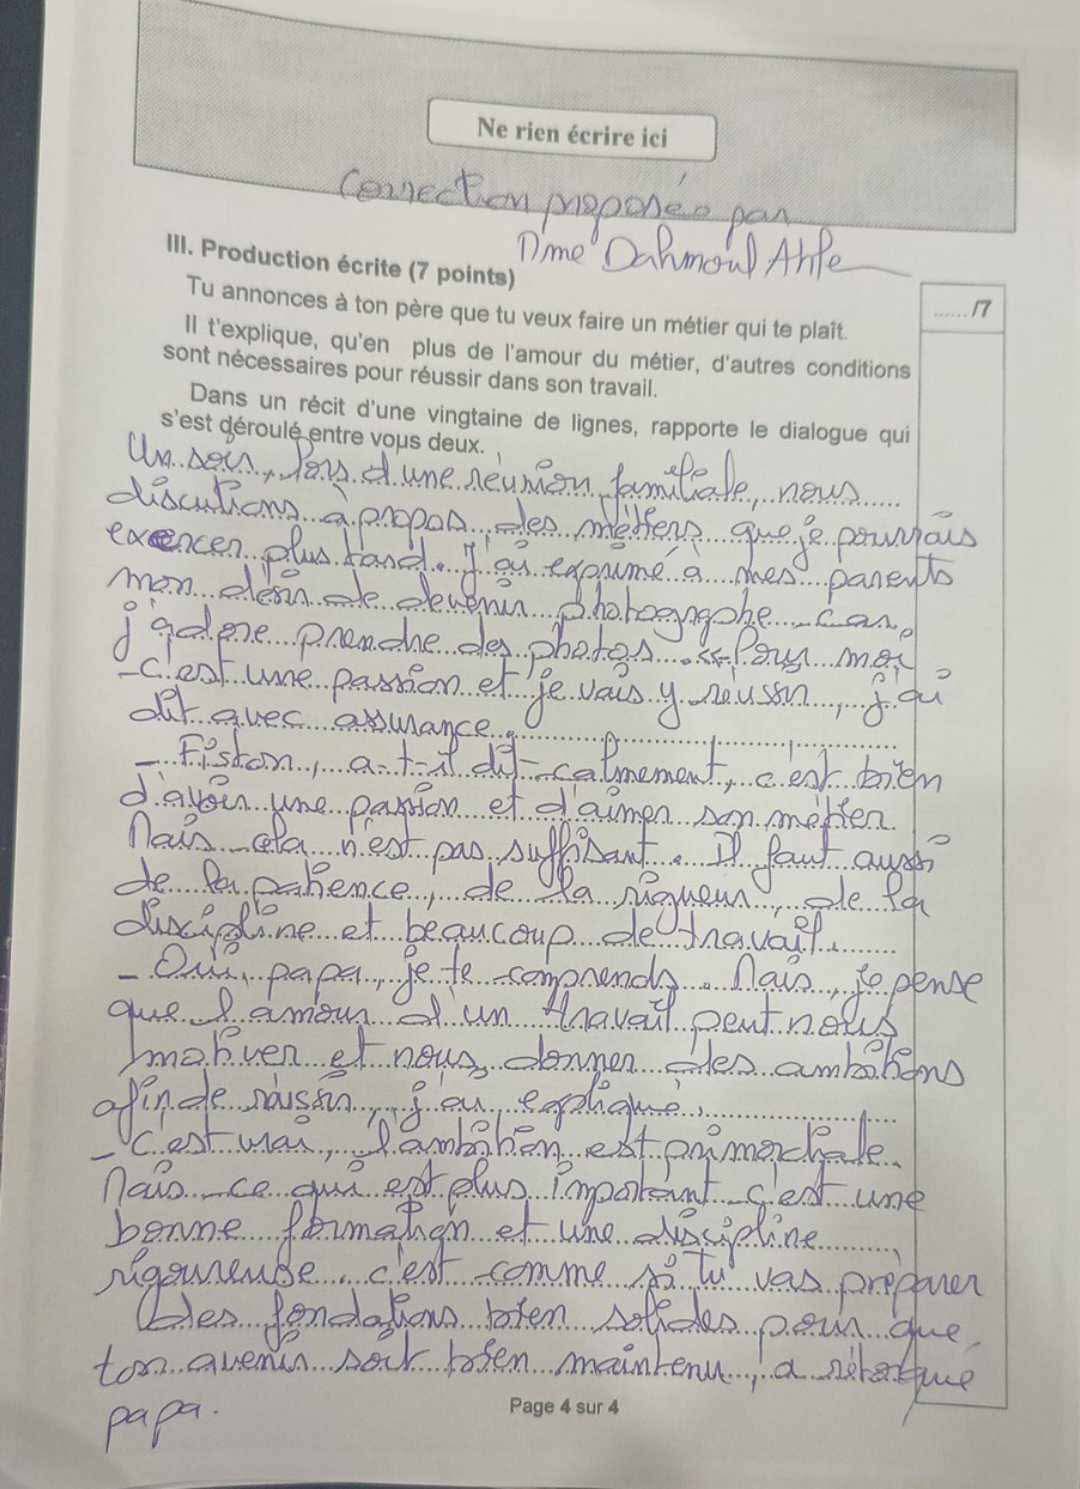 Ne rien écrire ici
Correction proposée par
Mme Dahmoul Ahle
III. Production écrite (7 points)
....../7
Tu annonces à ton père que tu veux faire un métier qui te plaît.
Il t'explique, qu'en plus de l'amour du métier, d'autres conditions
sont nécessaires pour réussir dans son travail.
Dans un récit d'une vingtaine de lignes, rapporte le dialogue qui
s'est déroulé entre vous deux.
Un soir, lors d'une réunion familiale, nous
discutions à propos des métiers que je pourrais
exercer plus tard. J'ai exprimé à mes parents
mon désir de devenir photographe car
j'adore prendre des photos. « Pour moi
- c'est une passion et je vais y réussir, j'ai
dit avec assurance.
- Fiston, a-t-il dit calmement, c'est bien
d'avoir une passion et d'aimer son métier.
Mais cela n'est pas suffisant. Il faut aussi
de la patience, de la rigueur, de la
discipline et beaucoup de travail.
- Oui, papa, je te comprends. Mais, je pense
que l'amour d'un travail peut nous
motiver et nous donner des ambitions
afin de réussir, j'ai expliqué.
- C'est vrai, l'ambition est primordiale.
Mais ce qui est plus important c'est une
bonne formation et une discipline
rigoureuse. c'est comme si tu vas préparer
des fondations bien solides pour que
ton avenir soit bien maintenu, a rétorqué
papa.
Page 4 sur 4